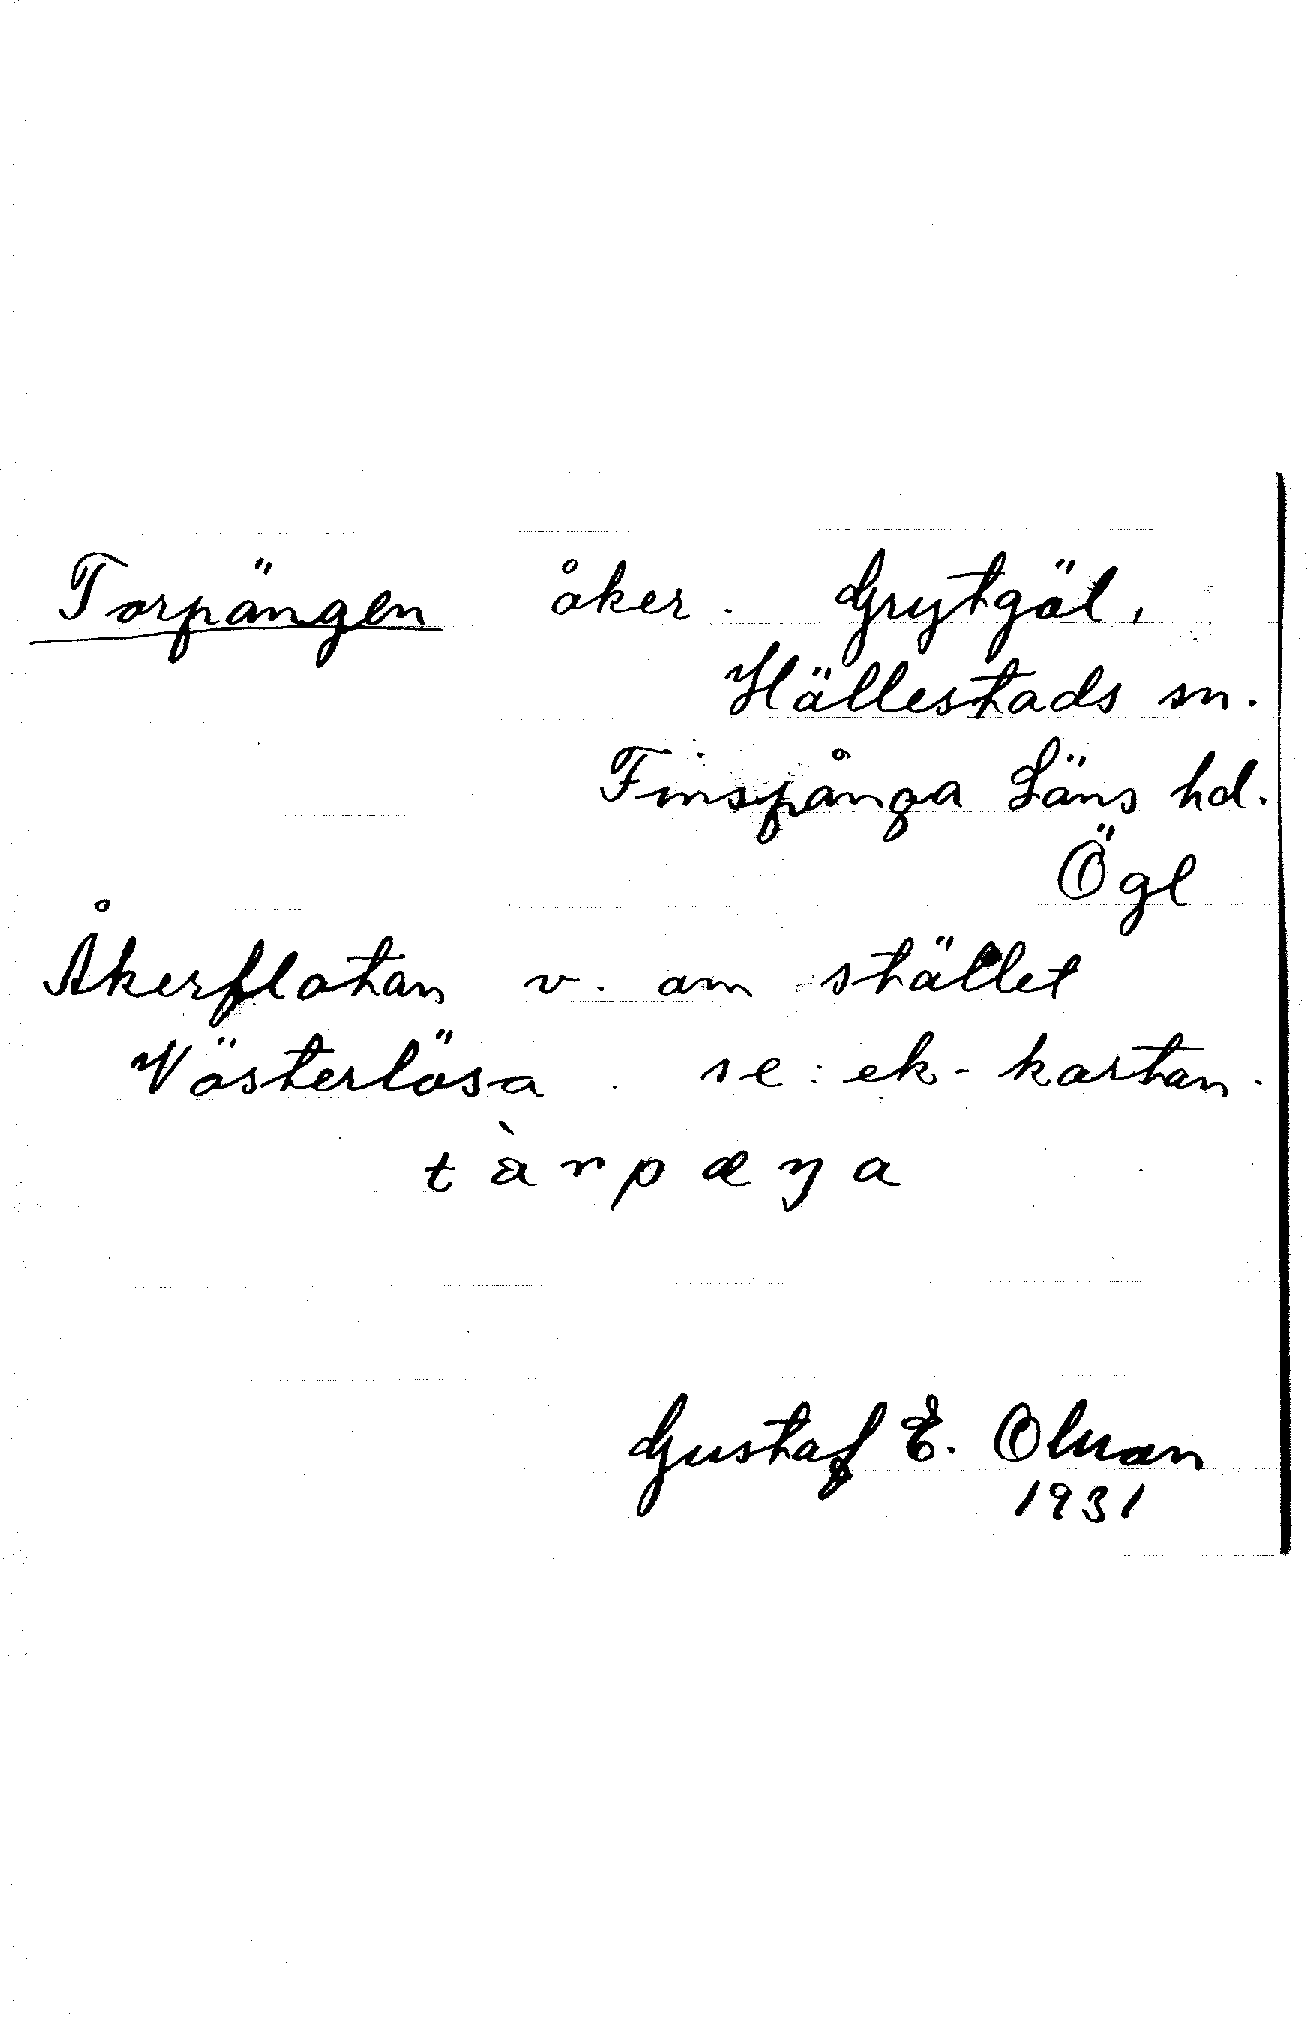 Torpängen åker. Grytgöl,
Hällestads sn.
Finspånga Läns hd.
Ögl
Åkerflatan v. om stället
Västerlösa. se: ek-kartan.
tàrpæŋa
Gustaf E. Olsson
1931